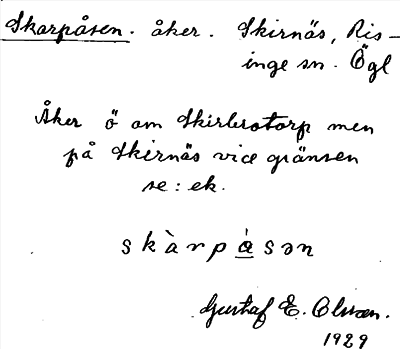 Skarpåsen. åker. Skirnäs, Ris-
inge sn. Ögl
Åker ö om Skirbrotorp men
på Skirnäs vid gränsen
se: ek.
skàrpåsən
Gustaf E. Olsson.
1929